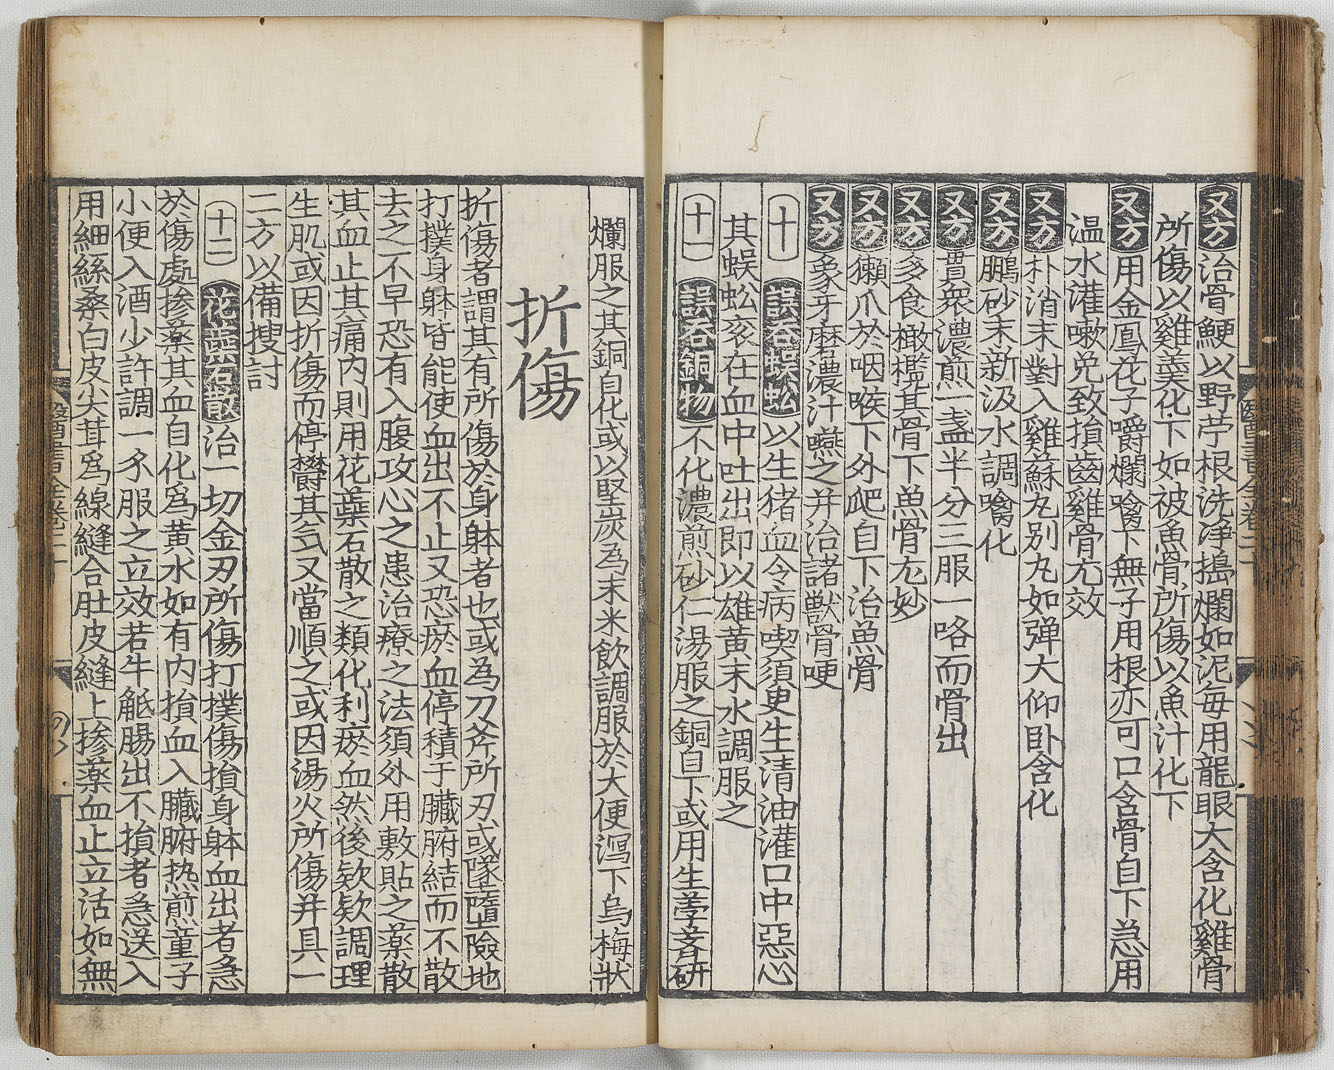 又方治骨鯁以野苧根洗淨搗爛如泥每用龍眼大含化雞骨
所傷以雞羹化下如被魚骨所傷以魚汁化下
又方用金鳳花子嚼爛噙下無子用根亦可口含骨自下急用
温水灌嗽免致損齒雞骨尤效
又方朴消末對入雞蘇丸別丸如弹大仰卧含化
又方鵬砂末新汲水調噙化
又方貫衆濃煎一盞半分三服一咯而骨出
又方多食橄欖其骨下魚骨尤妙
又方獺爪於咽喉下外爬自下治魚骨
又方象牙磨濃汁嚥之并治諸獸骨哽
十 誤吞蜈蚣以生猪血令病喫須臾生清油灌口中惡心
其蜈蚣衮在血中吐出即以雄黄末水調服之
十一 誤吞銅物不化濃煎砂仁湯服之銅自下或用生荸薺研
爛服之其銅自化或以堅炭為末米飲調服於大便瀉下烏梅狀
折傷
折傷者謂其有所傷於身躰者也或為刀斧所刃或墜墮險地
打撲身躰皆能使血出不止又恐瘀血停積于臟腑結而不散
去之不早恐有入腹攻心之患治療之法須外用敷貼之藥散
其血止其痛内則用花蘂石散之類化利瘀血然後欵欵調理
生肌或因折傷而停欝其气又當順之或因湯火所傷并具一
二方以備搜討
十二 花蘂石散治一切金刃所傷打撲傷損身躰血出者急
於傷處掺藥其血自化為黄水如有内損血入臟腑热煎童子
小便入酒少許調一錢服之立效若牛觝腸出不損者急送入
用細絲桑白皮尖茸為線縫合肚皮縫上掺藥血止立活如無